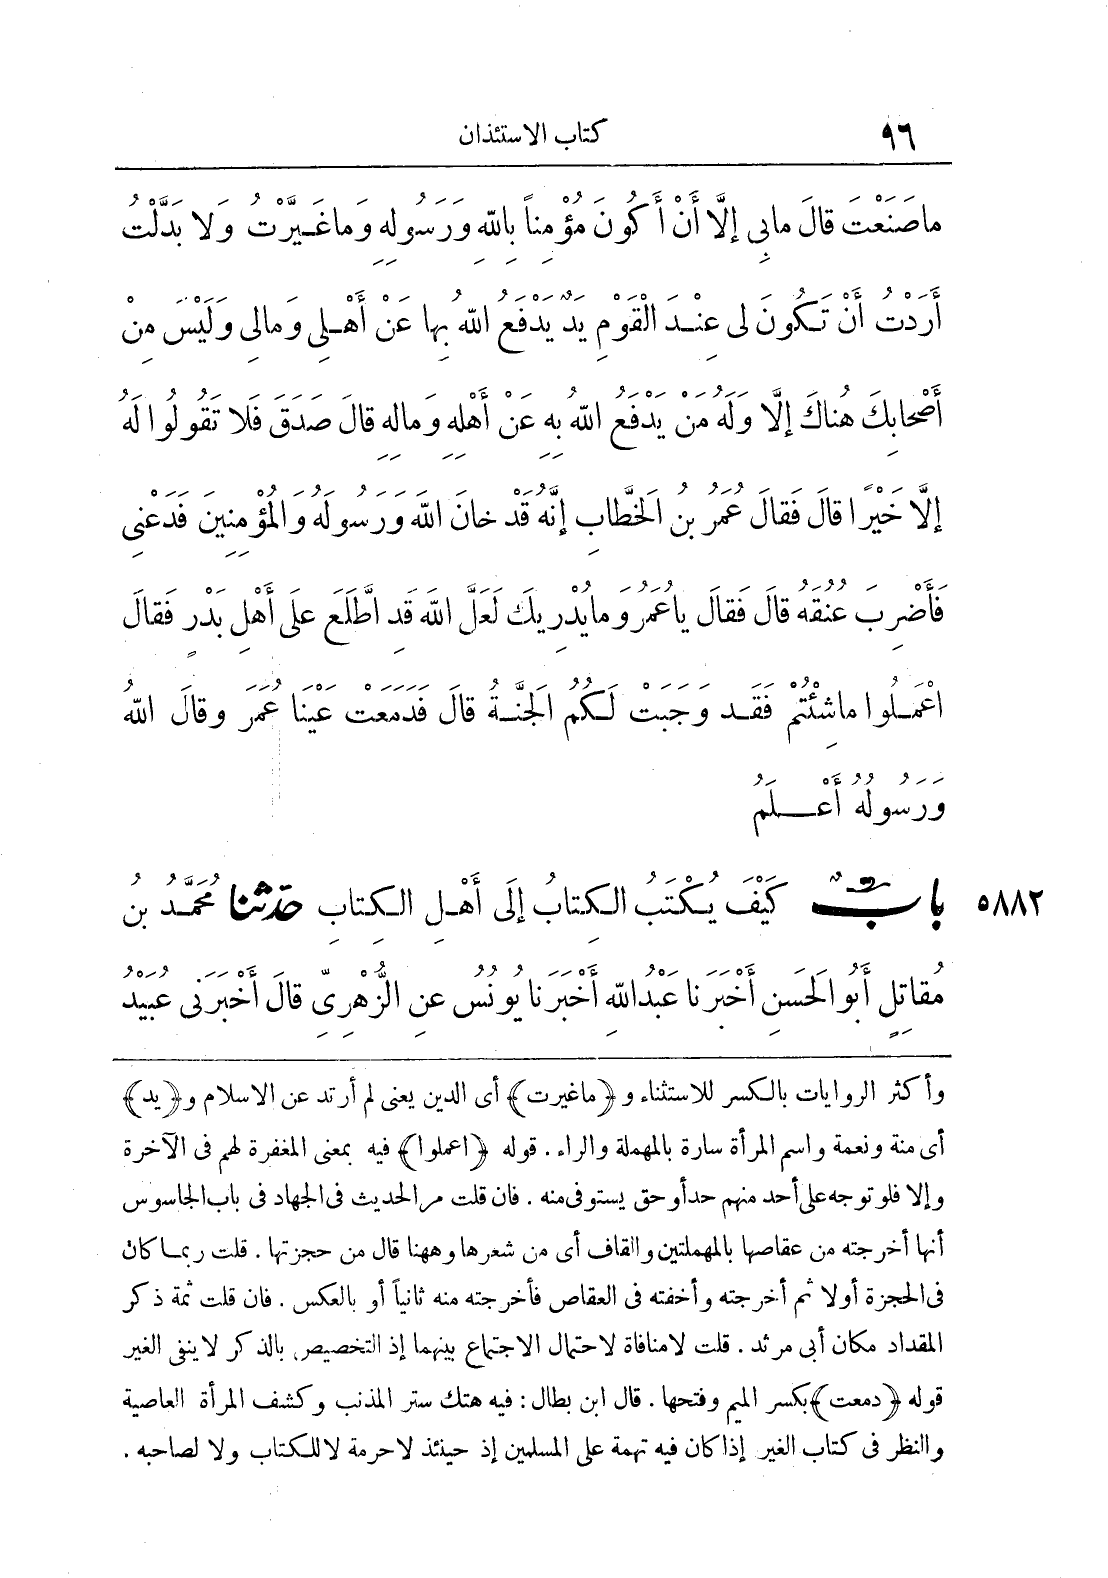 ٩٦ كتاب الاستئذان
ما صَنَعْتَ قالَ مابِى إلَّا أَنْ أَكُونَ مُؤْمِناً بِاللهِ وَرَسُولِهِ وَماغَيَّرْتُ وَلا بَدَّلْتُ
أَرَدْتُ أَنْ تَكُونَ لِى عِنْدَ القَوْمِ يَدٌ يَدْفَعُ اللهُ بِها عَنْ أَهْلِى وَمالِى وَلَيْسَ مِنْ
أَصْحابِكَ هُناكَ إلَّا وَلَهُ مَنْ يَدْفَعُ اللهُ بِهِ عَنْ أَهْلِهِ وَمالِهِ قالَ صَدَقَ فَلا تَقُولُوا لَهُ
إلَّا خَيْرًا قالَ فَقالَ عُمَرُ بنُ الخَطَّابِ إنَّهُ قَدْ خانَ اللهَ وَرَسُولَهُ وَالمُؤْمِنِينَ فَدَعْنِى
فَأَضْرِبَ عُنُقَهُ قالَ فَقالَ ياعُمَرُ وَمايُدْرِيكَ لَعَلَّ اللهَ قَدِ اطَّلَعَ عَلَى أَهْلِ بَدْرٍ فَقالَ
اعْمَلُوا ماشِئْتُمْ فَقَدْ وَجَبَتْ لَكُمُ الجَنَّةُ قالَ فَدَمَعَتْ عَيْنَا عُمَرَ وقالَ اللهُ
وَرَسُولُهُ أَعْلَمُ
٥٨٨٢ بابٌ كَيْفَ يُكْتَبُ الكِتابُ إلَى أَهْلِ الكِتابِ حَدَّثَنا مُحَمَّدُ بنُ
مُقاتِلٍ أَبُو الحَسَنِ أَخْبَرَنا عَبْدُاللهِ أَخْبَرَنا يُونُسُ عَنِ الزُّهْرِىِّ قالَ أَخْبَرَنِى عُبَيْدُ
وأكثر الروايات بالكسر للاستثناء و ﴿ماغيرت﴾ أى الدين يعنى لم أرتد عن الاسلام و﴿يد﴾
أى منة ونعمة واسم المرأة سارة بالمهملة والراء . قوله ﴿اعملوا﴾ فيه بمعنى المغفرة لهم فى الآخرة
وإلا فلو توجه على أحد منهم حد أو حق يستوفى منه . فان قلت مر الحديث فى الجهاد فى باب الجاسوس
أنها أخرجته من عقاصها بالمهملتين والقاف أى من شعرها وههنا قال من حجزتها . قلت ربما كان
فى الحجزة أولا ثم أخرجته وأخفته فى العقاص فأخرجته منه ثانياً أو بالعكس . فان قلت ثمة ذكر
المقداد مكان أبى مرثد . قلت لامنافاة لاحتمال الاجتماع بينهما إذ التخصيص بالذكر لاينفى الغير
قوله ﴿دمعت﴾ بكسر الميم وفتحها . قال ابن بطال : فيه هتك ستر المذنب وكشف المرأة العاصية
والنظر فى كتاب الغير إذا كان فيه تهمة على المسلمين إذ حينئذ لاحرمة لا للكتاب ولا لصاحبه .